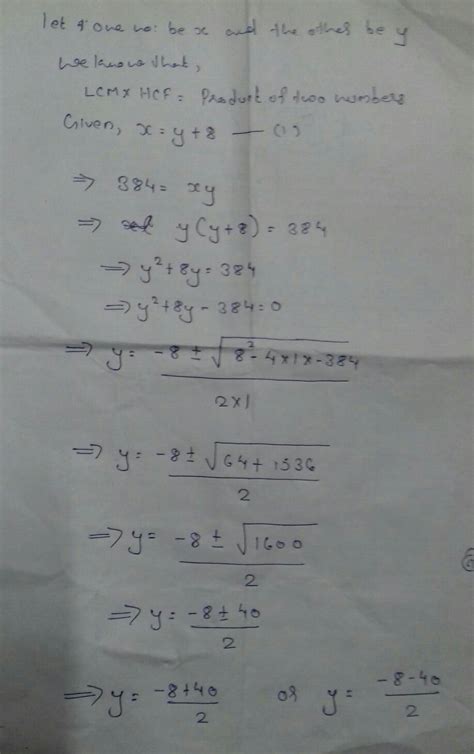 let one no: be x and the other be y
we know that,
LCM x HCF = Product of two numbers
Given, x = y + 8 — (1)
⇒ 384 = xy
⇒ y(y+8) = 384
⇒ y² + 8y = 384
⇒ y² + 8y - 384 = 0
⇒ y = (-8 ± √(8² - 4x1x-384)) / (2x1)
⇒ y = (-8 ± √(64 + 1536)) / 2
⇒ y = (-8 ± √1600) / 2
⇒ y = (-8 ± 40) / 2
⇒ y = (-8+40) / 2 or y = (-8-40) / 2